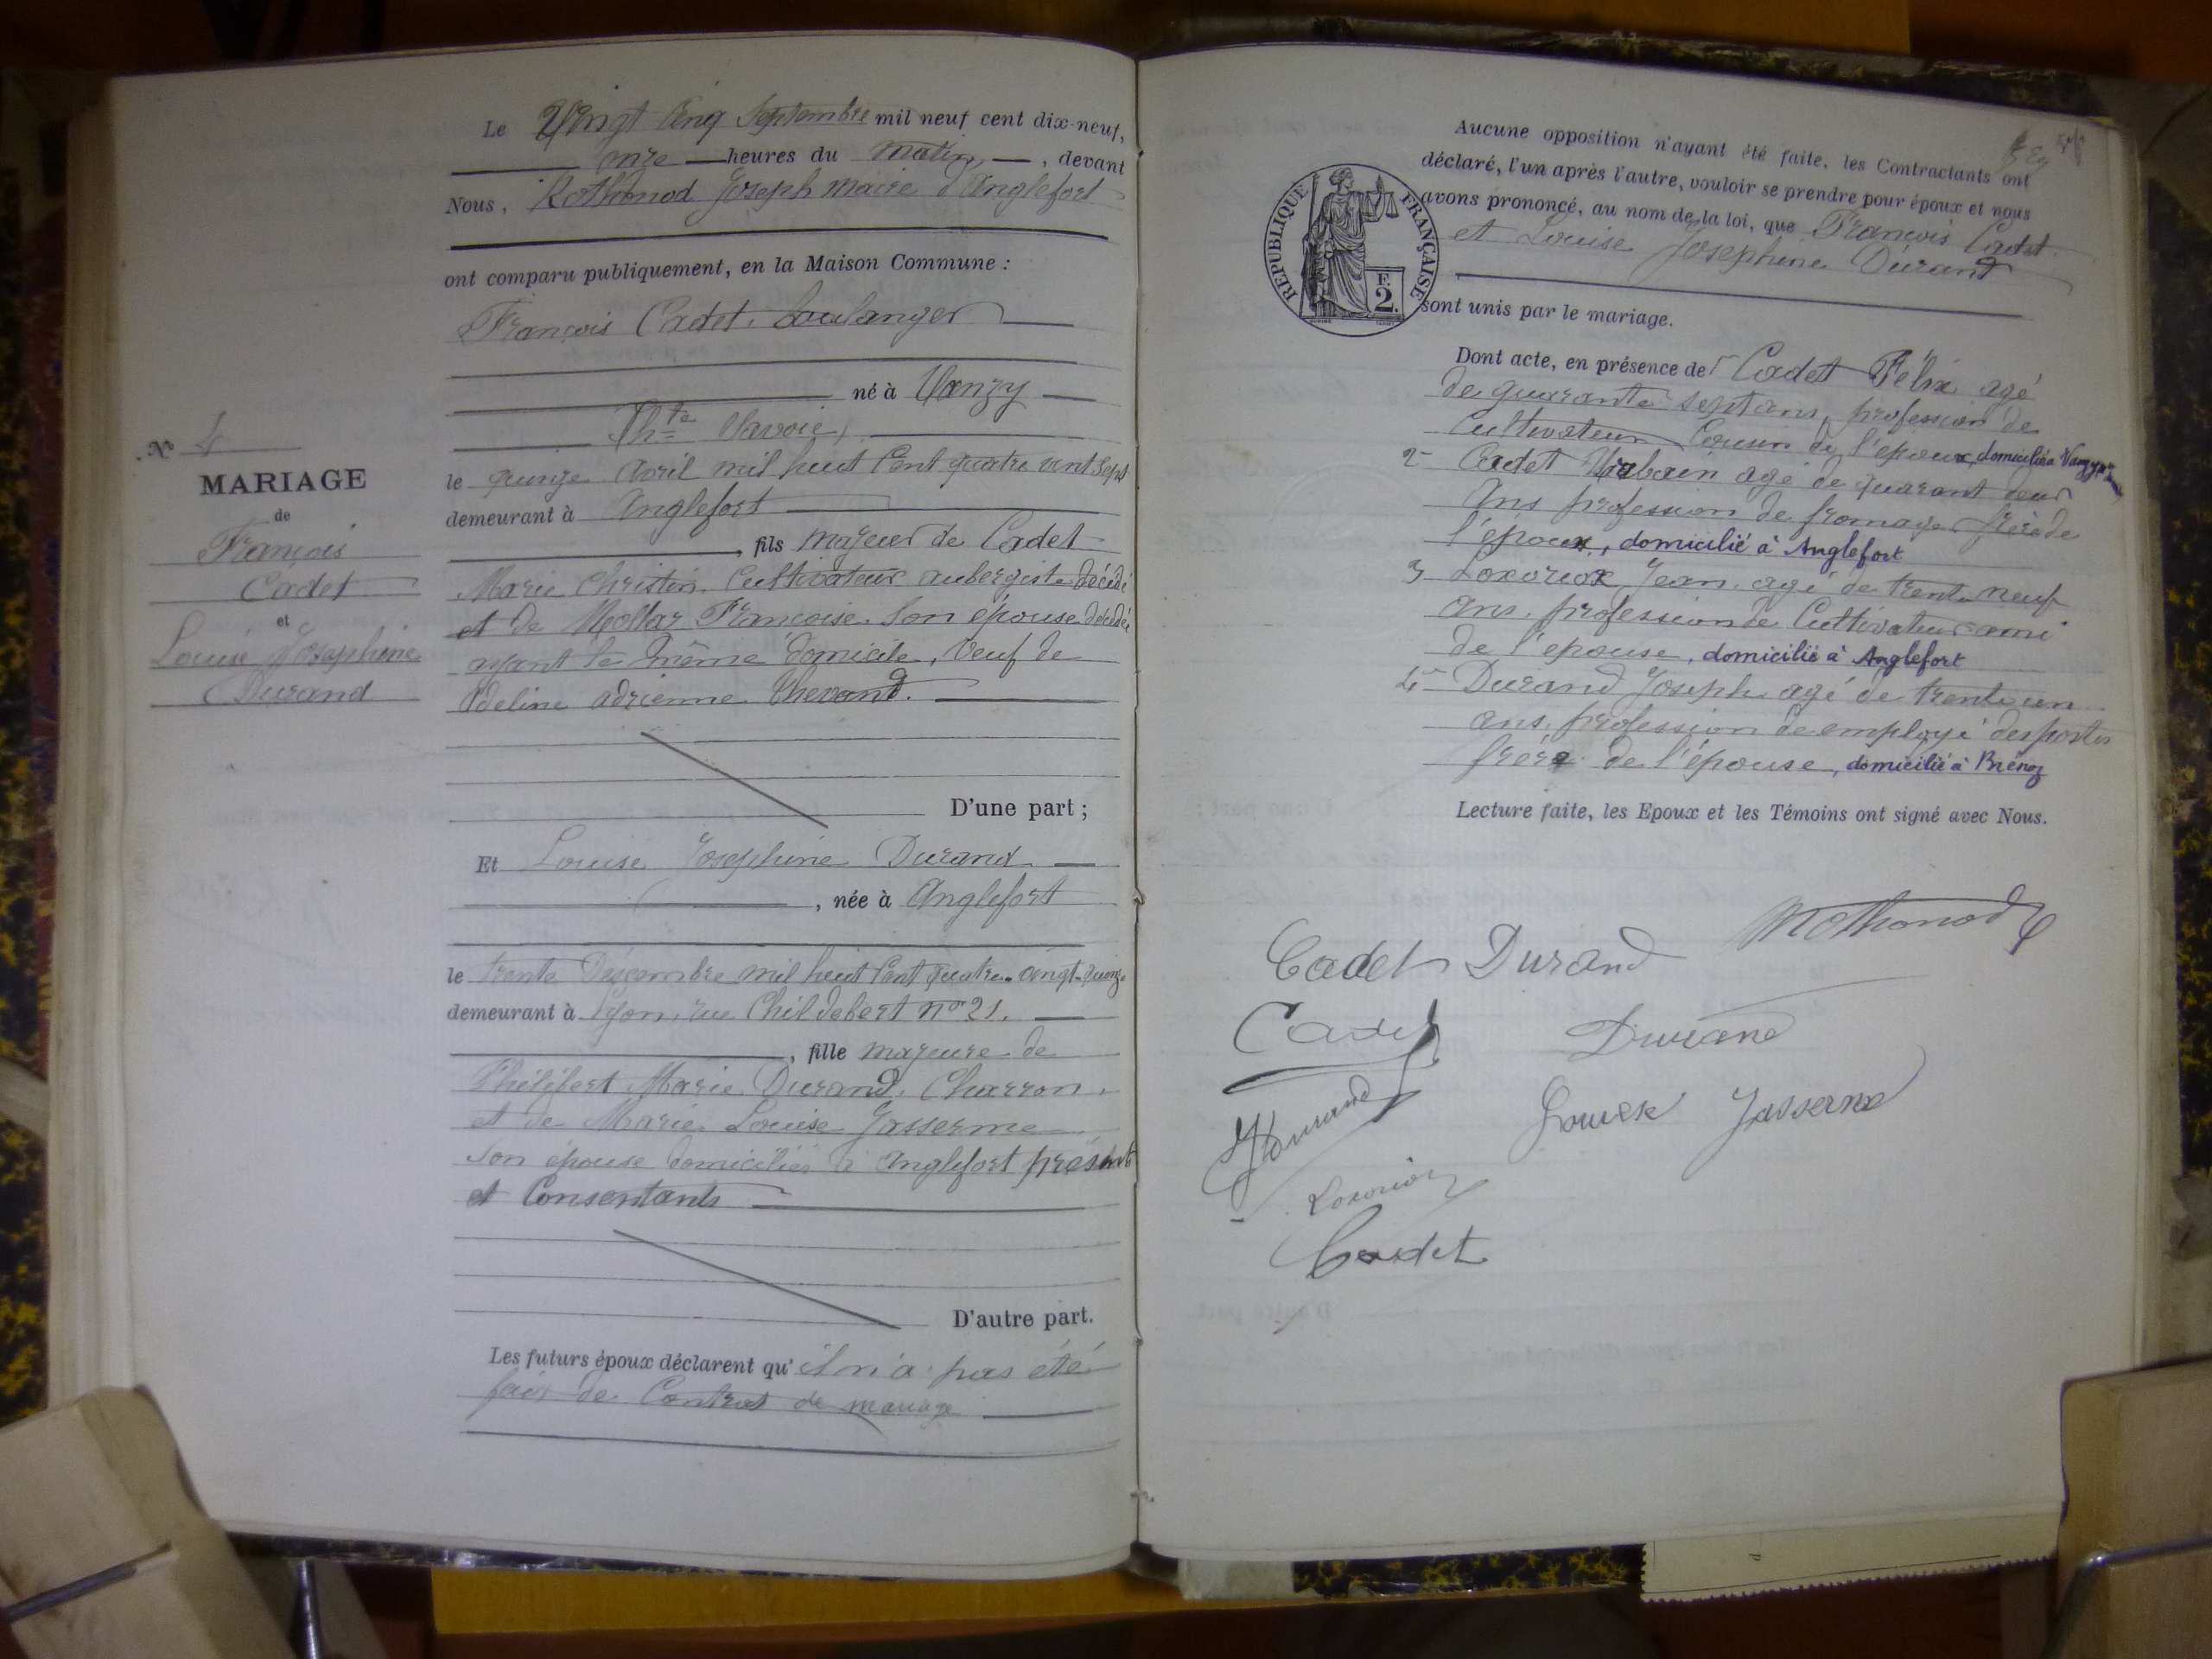 Le Vingt Cinq Septembre mil neuf cent dix-neuf,
onze heures du matin, devant
Nous, Rothonod Joseph maire d'Anglefort
ont comparu publiquement, en la Maison Commune :
François Cadet. boulanger
né à Vanzy
(hte Savoie)
le quinze Avril mil huit Cent quatre vint Sept
demeurant à Anglefort
, fils majeur de Cadet
Marie Christin. Cultivateur aubergiste décédé
et de Mollar Françoise. Son épouse décédée
ayant le même domicile, Veuf de
Adeline adrienne Thevand.
D'une part ;
N° 4
MARIAGE
de
François
Cadet
et
Louise Josephine
Durand
Et Louise Josephine Durand
, née à Anglefort
le trente Décembre mil huit Cent quatre-vingt-quinze
demeurant à Lyon, rue Childebert n° 21.
, fille majeure de
Philibert Marie Durand. Charron.
et de Marie Louise Jasserme
Son épouse domiciliés à Anglefort présents
et Consentants
D'autre part.
Les futurs époux déclarent qu'il n'a pas été
fait de Contrat de mariage
Aucune opposition n'ayant été faite, les Contractants ont
déclaré, l'un après l'autre, vouloir se prendre pour époux et nous
avons prononcé, au nom de la loi, que François Cadet
et Louise Josephine Durand
REPUBLIQUE FRANÇAISE
F.
2.
sont unis par le mariage.
Dont acte, en présence de 1° Cadet Félix agé
de quarante sept ans, profession de
Cultivateur Cousin de l'époux, domicilié à Vanzy
2° Cadet Urbain agé de quarant deux
Ans profession de fromager frère de
l'époux, domicilié à Anglefort
3 Loxoriox Jean. agé de trente neuf
Ans. profession de Cultivateur ami
de l'épouse, domicilié à Anglefort
4° Durand Joseph agé de trente un
ans, profession de employé des postes
frère de l'épouse, domicilié à Brénaz
Lecture faite, les Epoux et les Témoins ont signé avec Nous.
Cadet Durand Rothonod
Cadet Durand
J Durand Louise Jasserme
Loxorioz
Cadet